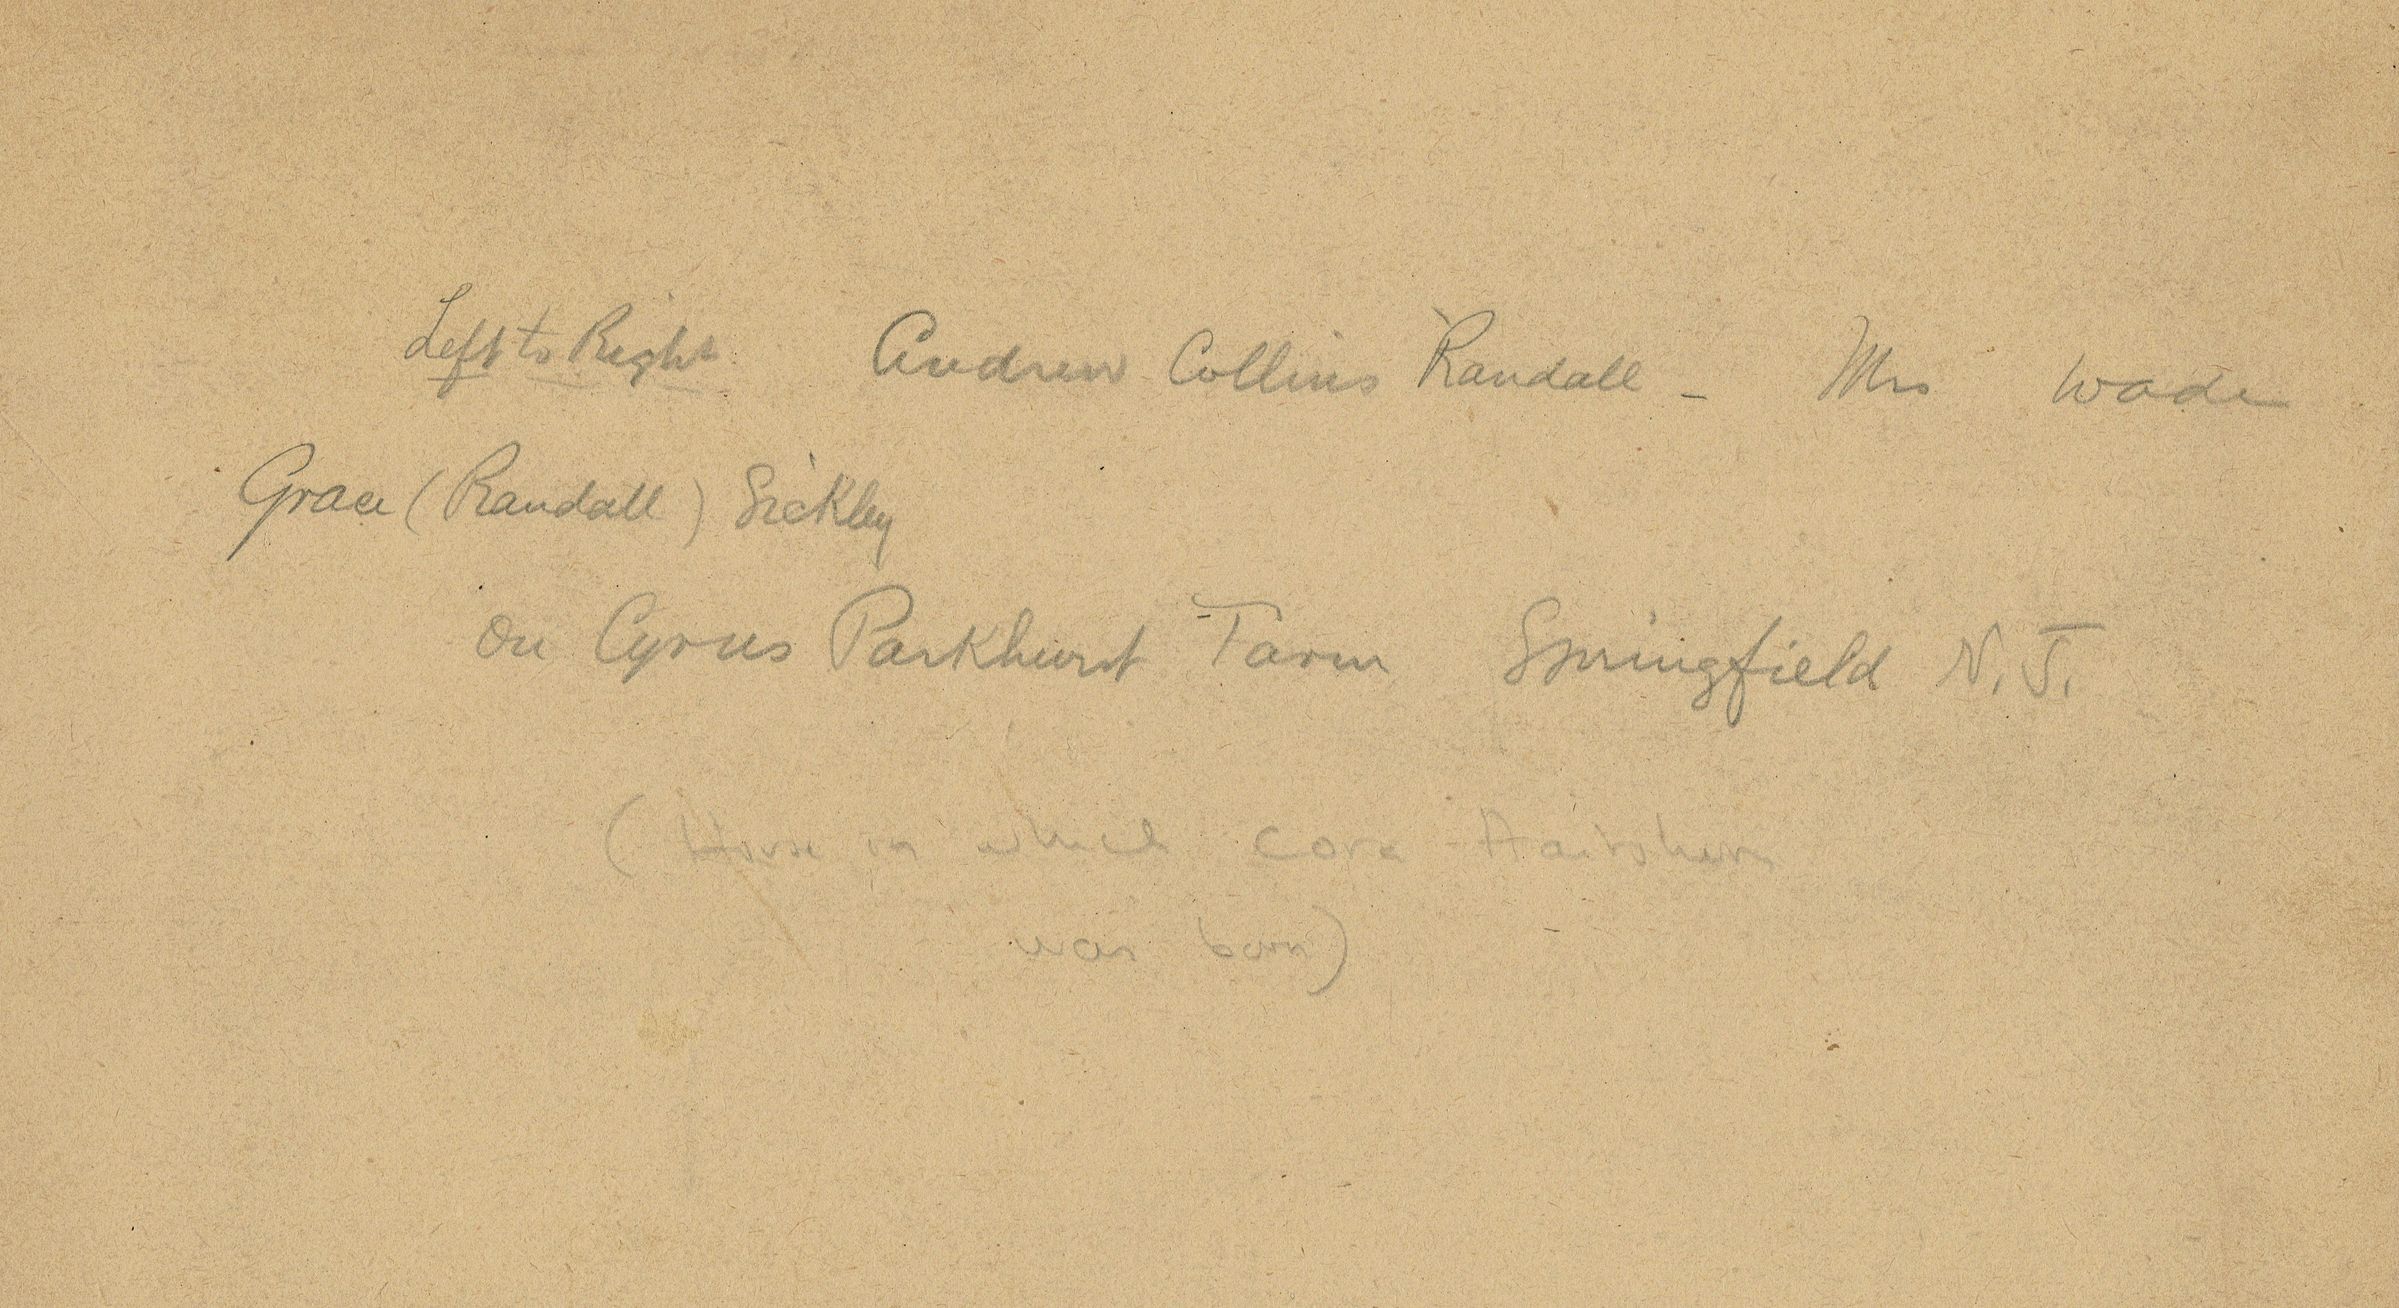 Left to Right Andrew Collins Randall - Mrs Wade
Grace (Randall) Sickley
on Cyrus Parkhurst Farm Springfield N.J.
(House in which Cora
was born)